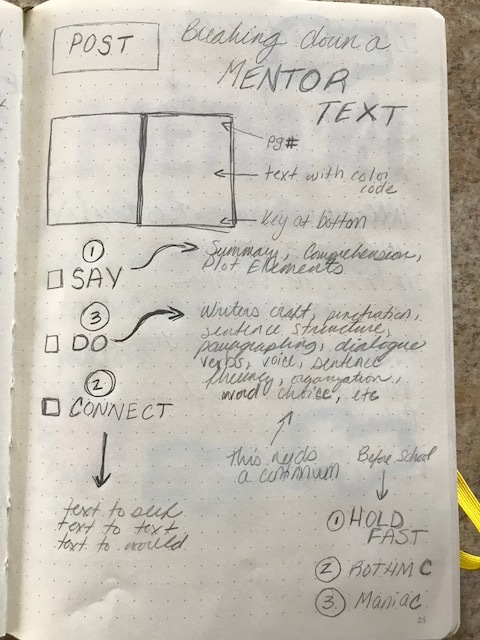 POST
Breaking down a
MENTOR
TEXT
pg#
text with color
code
Key at bottom
1
SAY
Summary, Comprehension,
Plot Elements
3
DO
Writers craft, punctuation,
sentence structure,
paragraphing, dialogue
verbs, voice, sentence
fluency, organization,
word choice, etc
2
CONNECT
This needs
a continuum
Before School
text to self
text to text
text to world
1 HOLD
FAST
2 ROT4MC
3. Maniac
25